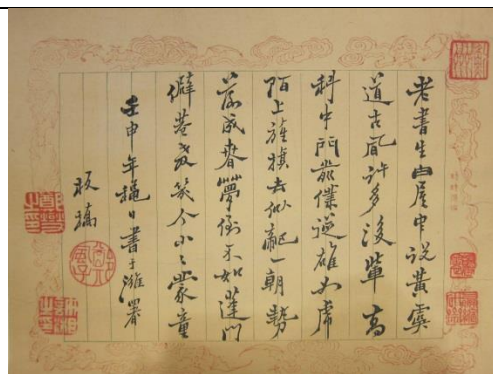 老書生白屋中說黃虞
道古風許多後輩高
科中門前僕從雄如虎
陌上旌旗去似龍一朝勢
落成春夢倒不如蓬門
僻巷教幾个小々蒙童
壬申年穐日書于濰署
板橋